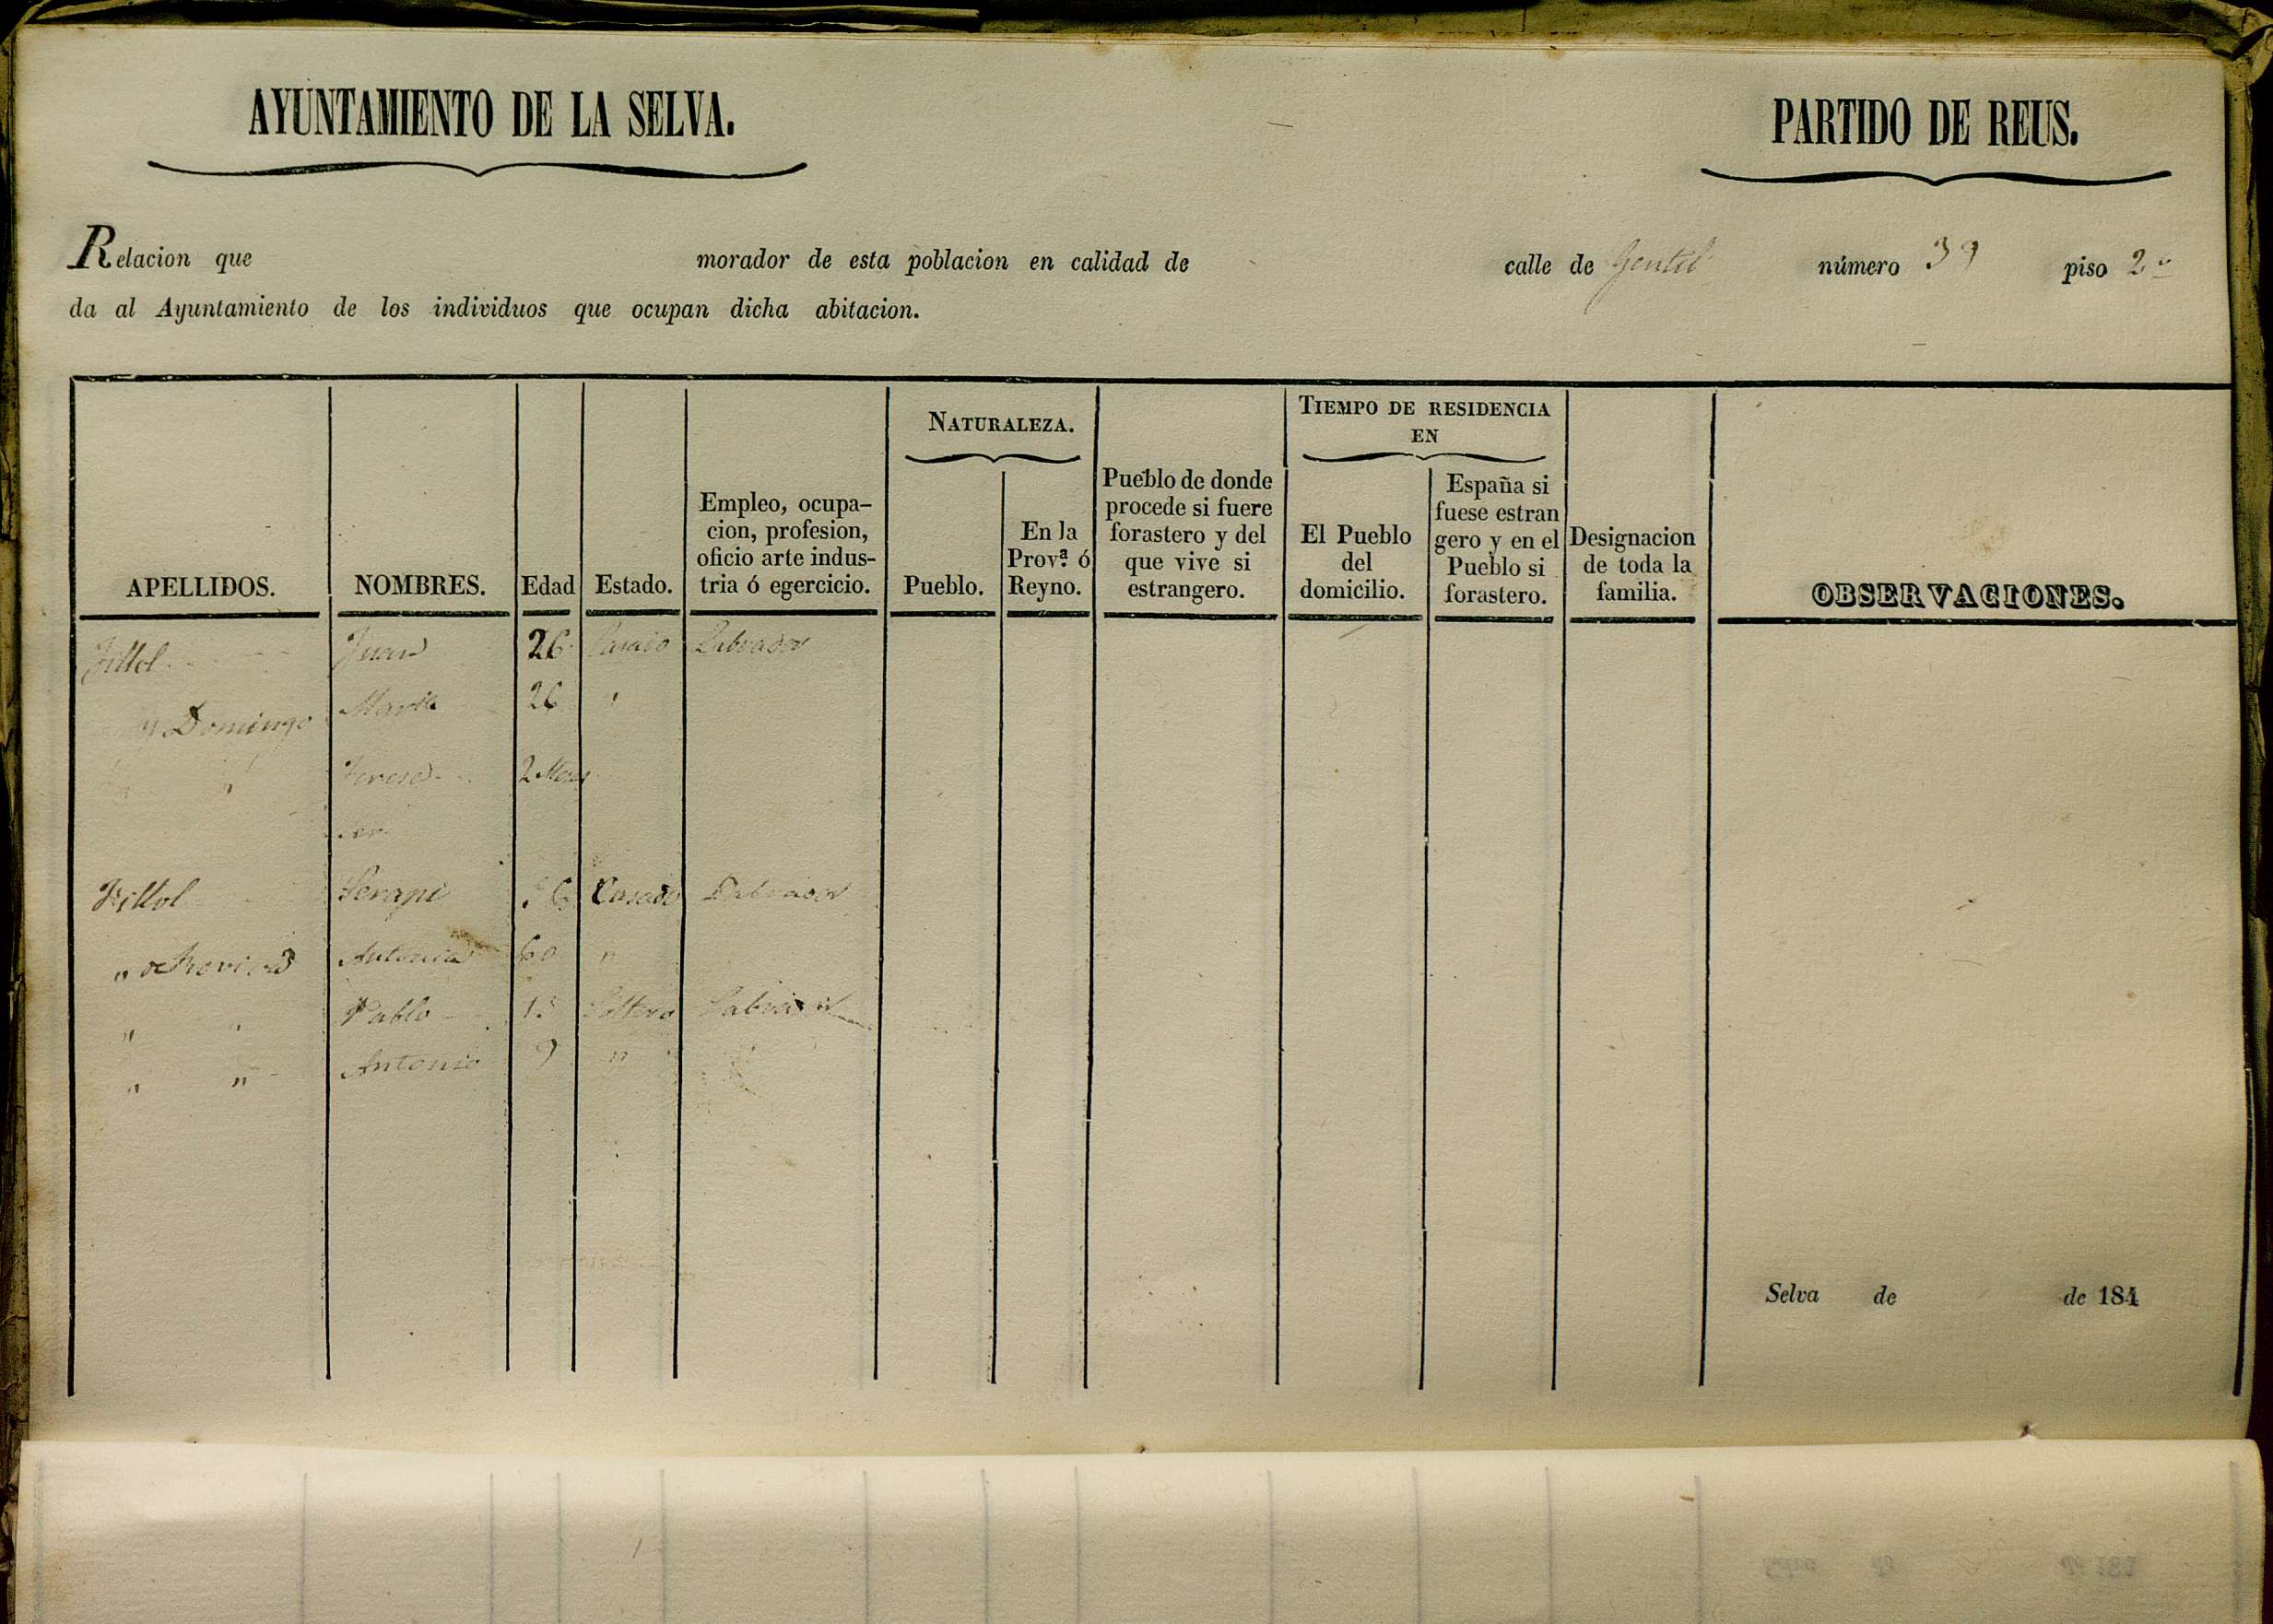 AYUNTAMIENTO DE LA SELVA.
PARTIDO DE REUS.
Relacion que morador de esta poblacion en calidad de calle de Gentil número 39 piso 2º
da al Ayuntamiento de los individuos que ocupan dicha abitacion.
APELLIDOS.
NOMBRES.
Edad
Estado.
Empleo, ocupa-
cion, profesion,
oficio arte indus-
tria ó egercicio.
NATURALEZA.
Pueblo.
En la
Provª. ó
Reyno.
Pueblo de donde
procede si fuere
forastero y del
que vive si
estrangero.
TIEMPO DE RESIDENCIA
EN
El Pueblo
del
domicilio.
España si
fuese estran
gero y en el
Pueblo si
forastero.
Designacion
de toda la
familia.
OBSERVACIONES.
Juan 26 Casado Labrador
y Domingo Maria 26 "
" Teresa 2 Meses
Serapi Casado Labrador
" Antonia 60 "
" " Pablo 13 Soltero Labrador
" " Antonio 9 "
Selva de de 184